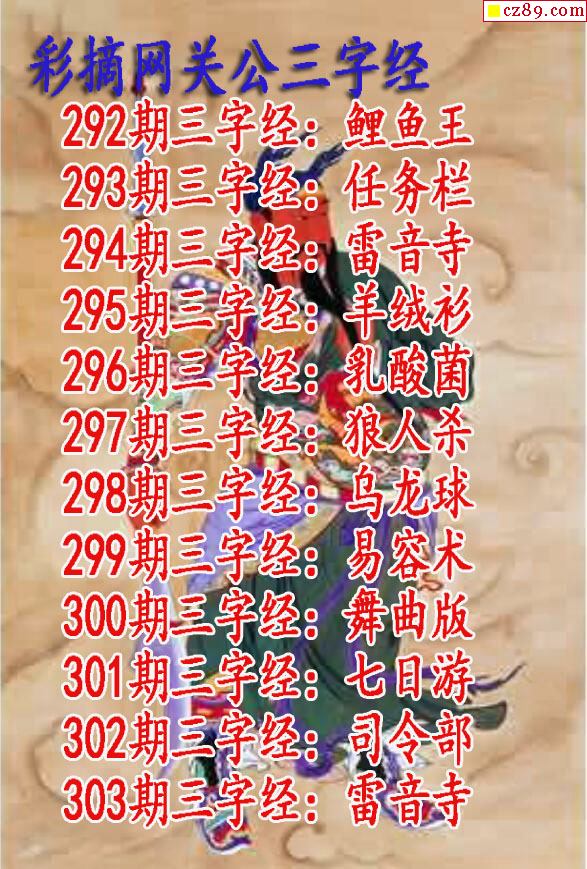 cz89.com
彩摘网关公三字经
292期三字经：鲤鱼王
293期三字经：任务栏
294期三字经：雷音寺
295期三字经：羊绒衫
296期三字经：乳酸菌
297期三字经：狼人杀
298期三字经：乌龙球
299期三字经：易容术
300期三字经：舞曲版
301期三字经：七日游
302期三字经：司令部
303期三字经：雷音寺